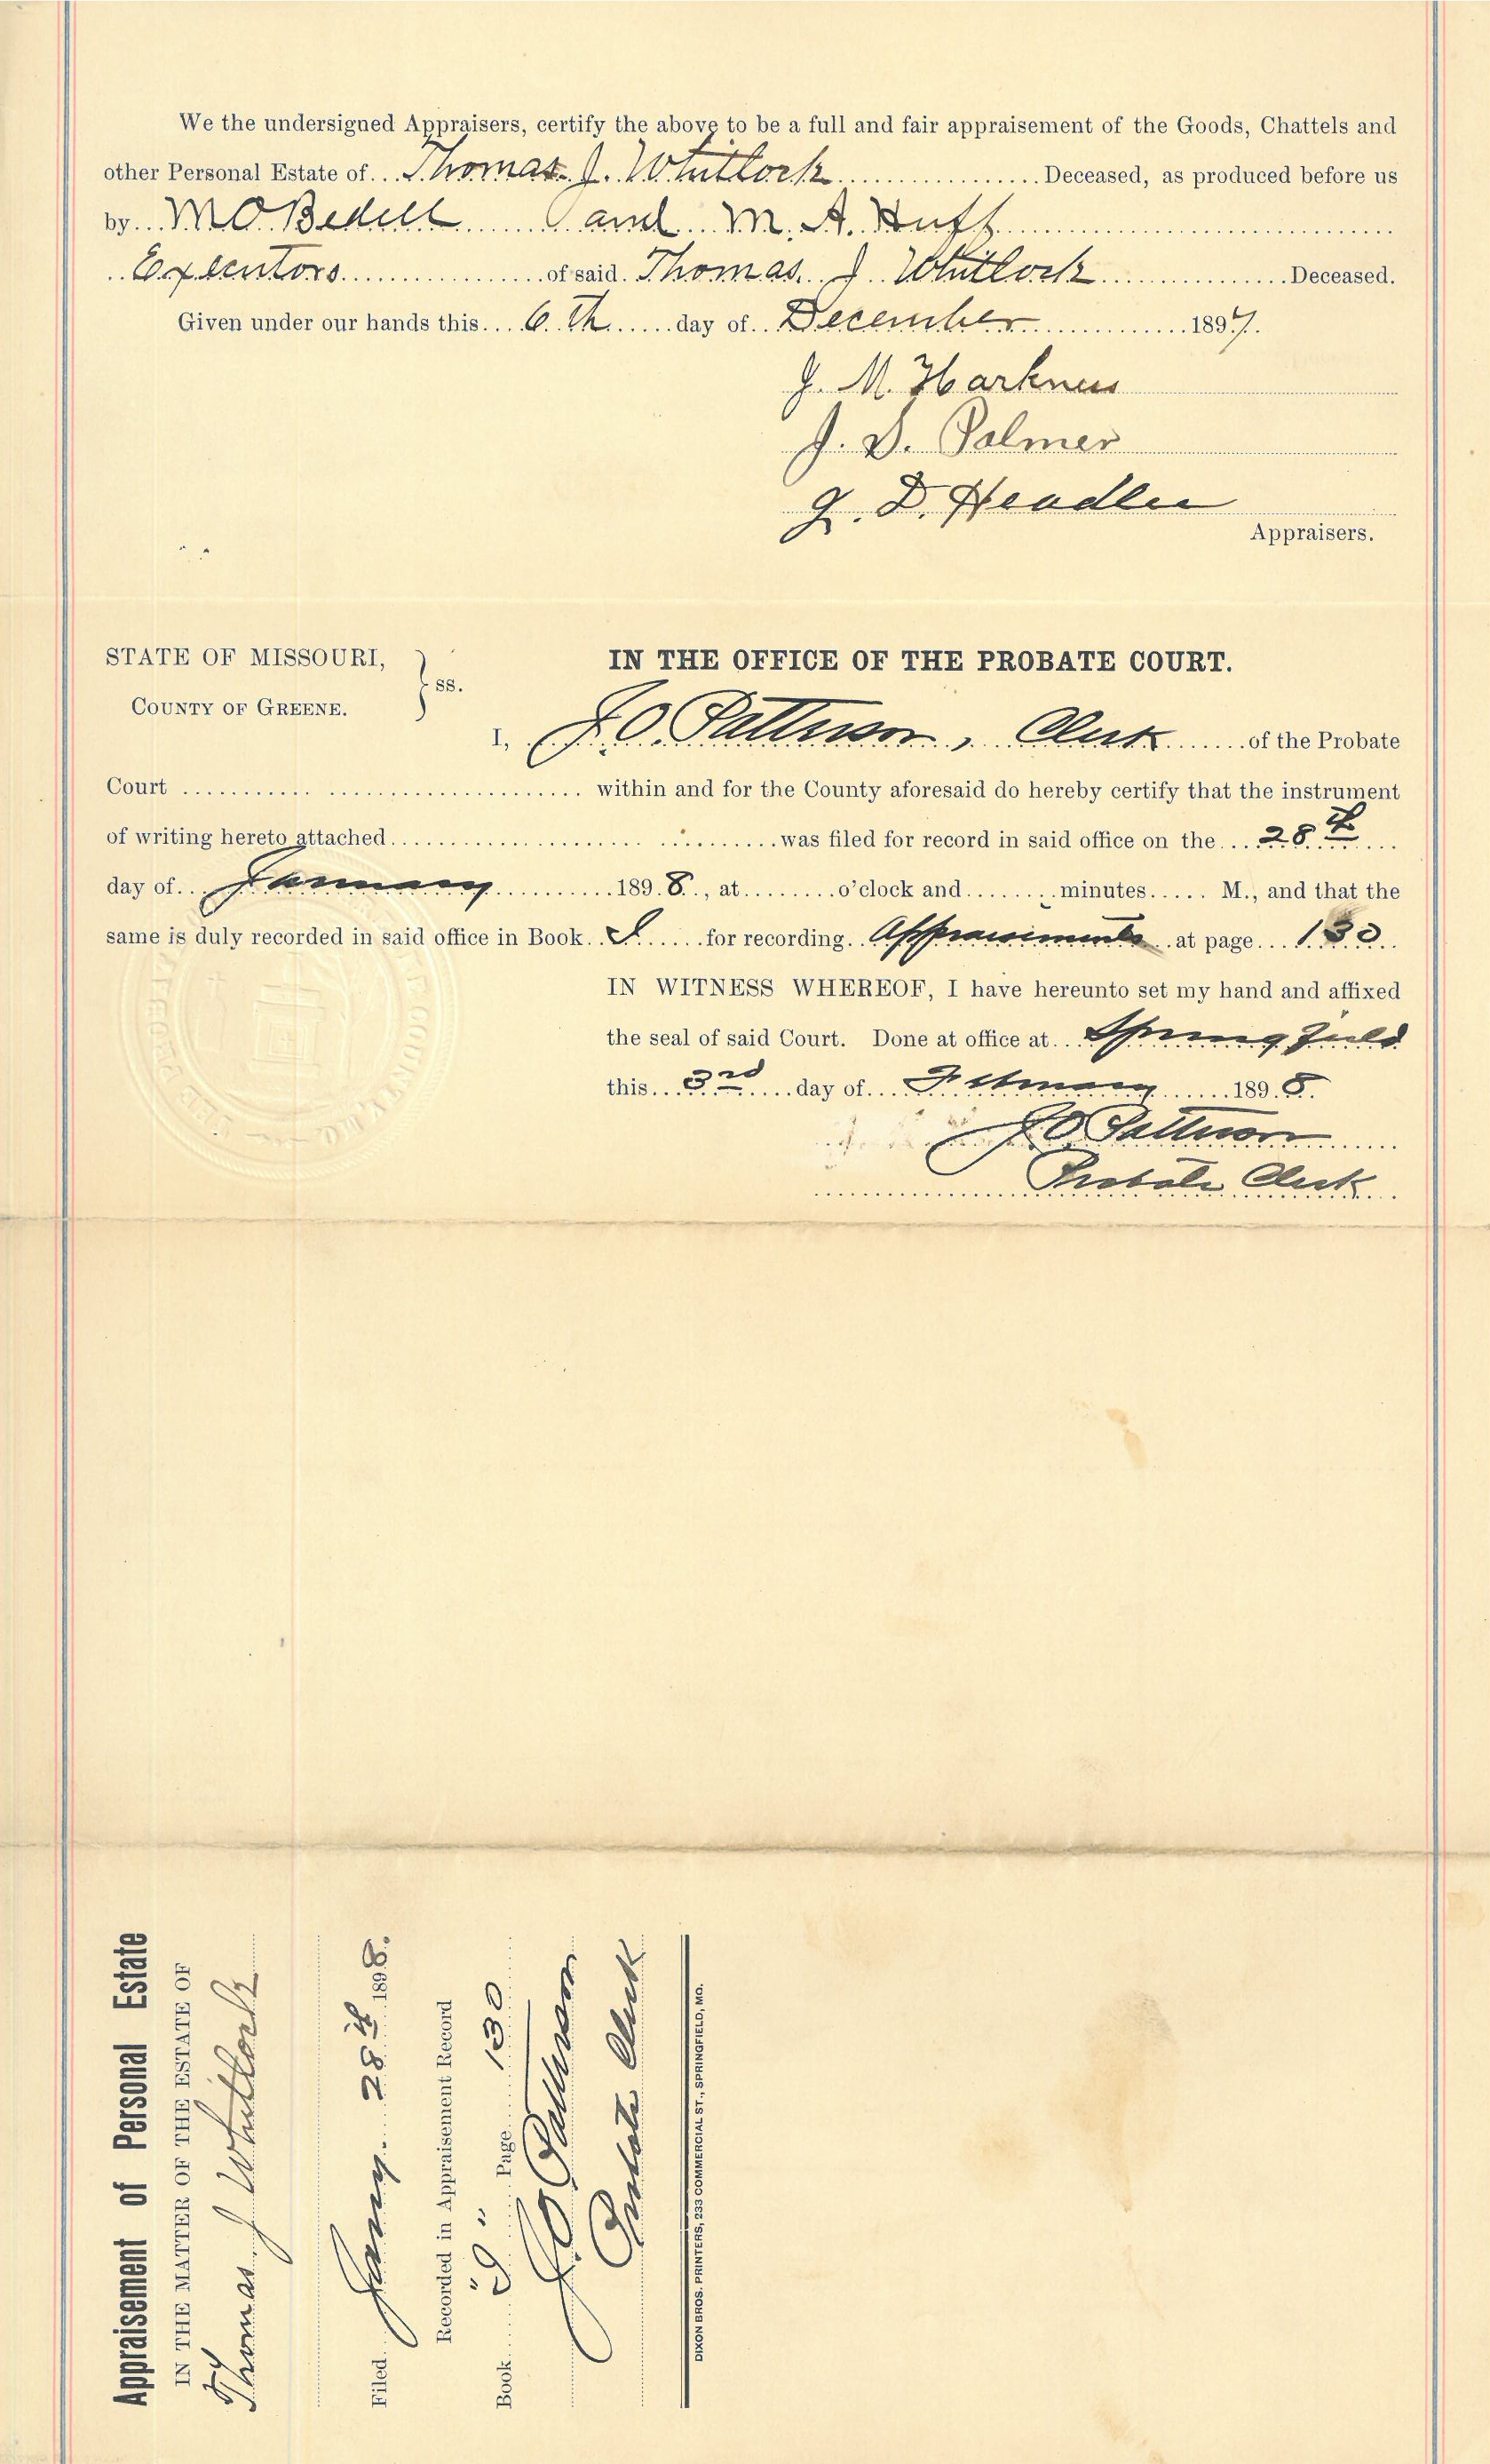 We the undersigned Appraisers, certify the above to be a full and fair appraisement of the Goods, Chattels and
other Personal Estate of Thomas J. Whitlock Deceased, as produced before us
by M O Bedell and M. A. Huff
Executors of said Thomas J Whitlock Deceased.
Given under our hands this 6th day of December 1897.
J. M. Harkness
J. D. Palmer
J. D. Headlee
Appraisers.
STATE OF MISSOURI,
COUNTY OF GREENE. } ss.
IN THE OFFICE OF THE PROBATE COURT.
I, J. O. Patterson, Clerk of the Probate
Court within and for the County aforesaid do hereby certify that the instrument
of writing hereto attached was filed for record in said office on the 28th
day of January 1898, at o'clock and minutes M., and that the
same is duly recorded in said office in Book I for recording Appraisements at page 130
IN WITNESS WHEREOF, I have hereunto set my hand and affixed
the seal of said Court. Done at office at Springfield
this 3rd day of February 1898.
J O Patterson
Probate Clerk
Appraisement of Personal Estate
IN THE MATTER OF THE ESTATE OF
Thomas J Whitlock
Filed Jany. 28th 1898.
Recorded in Appraisement Record
Book "I" Page 130
J. O. Patterson
Probate Clerk
DIXON BROS. PRINTERS, 233 COMMERCIAL ST., SPRINGFIELD, MO.